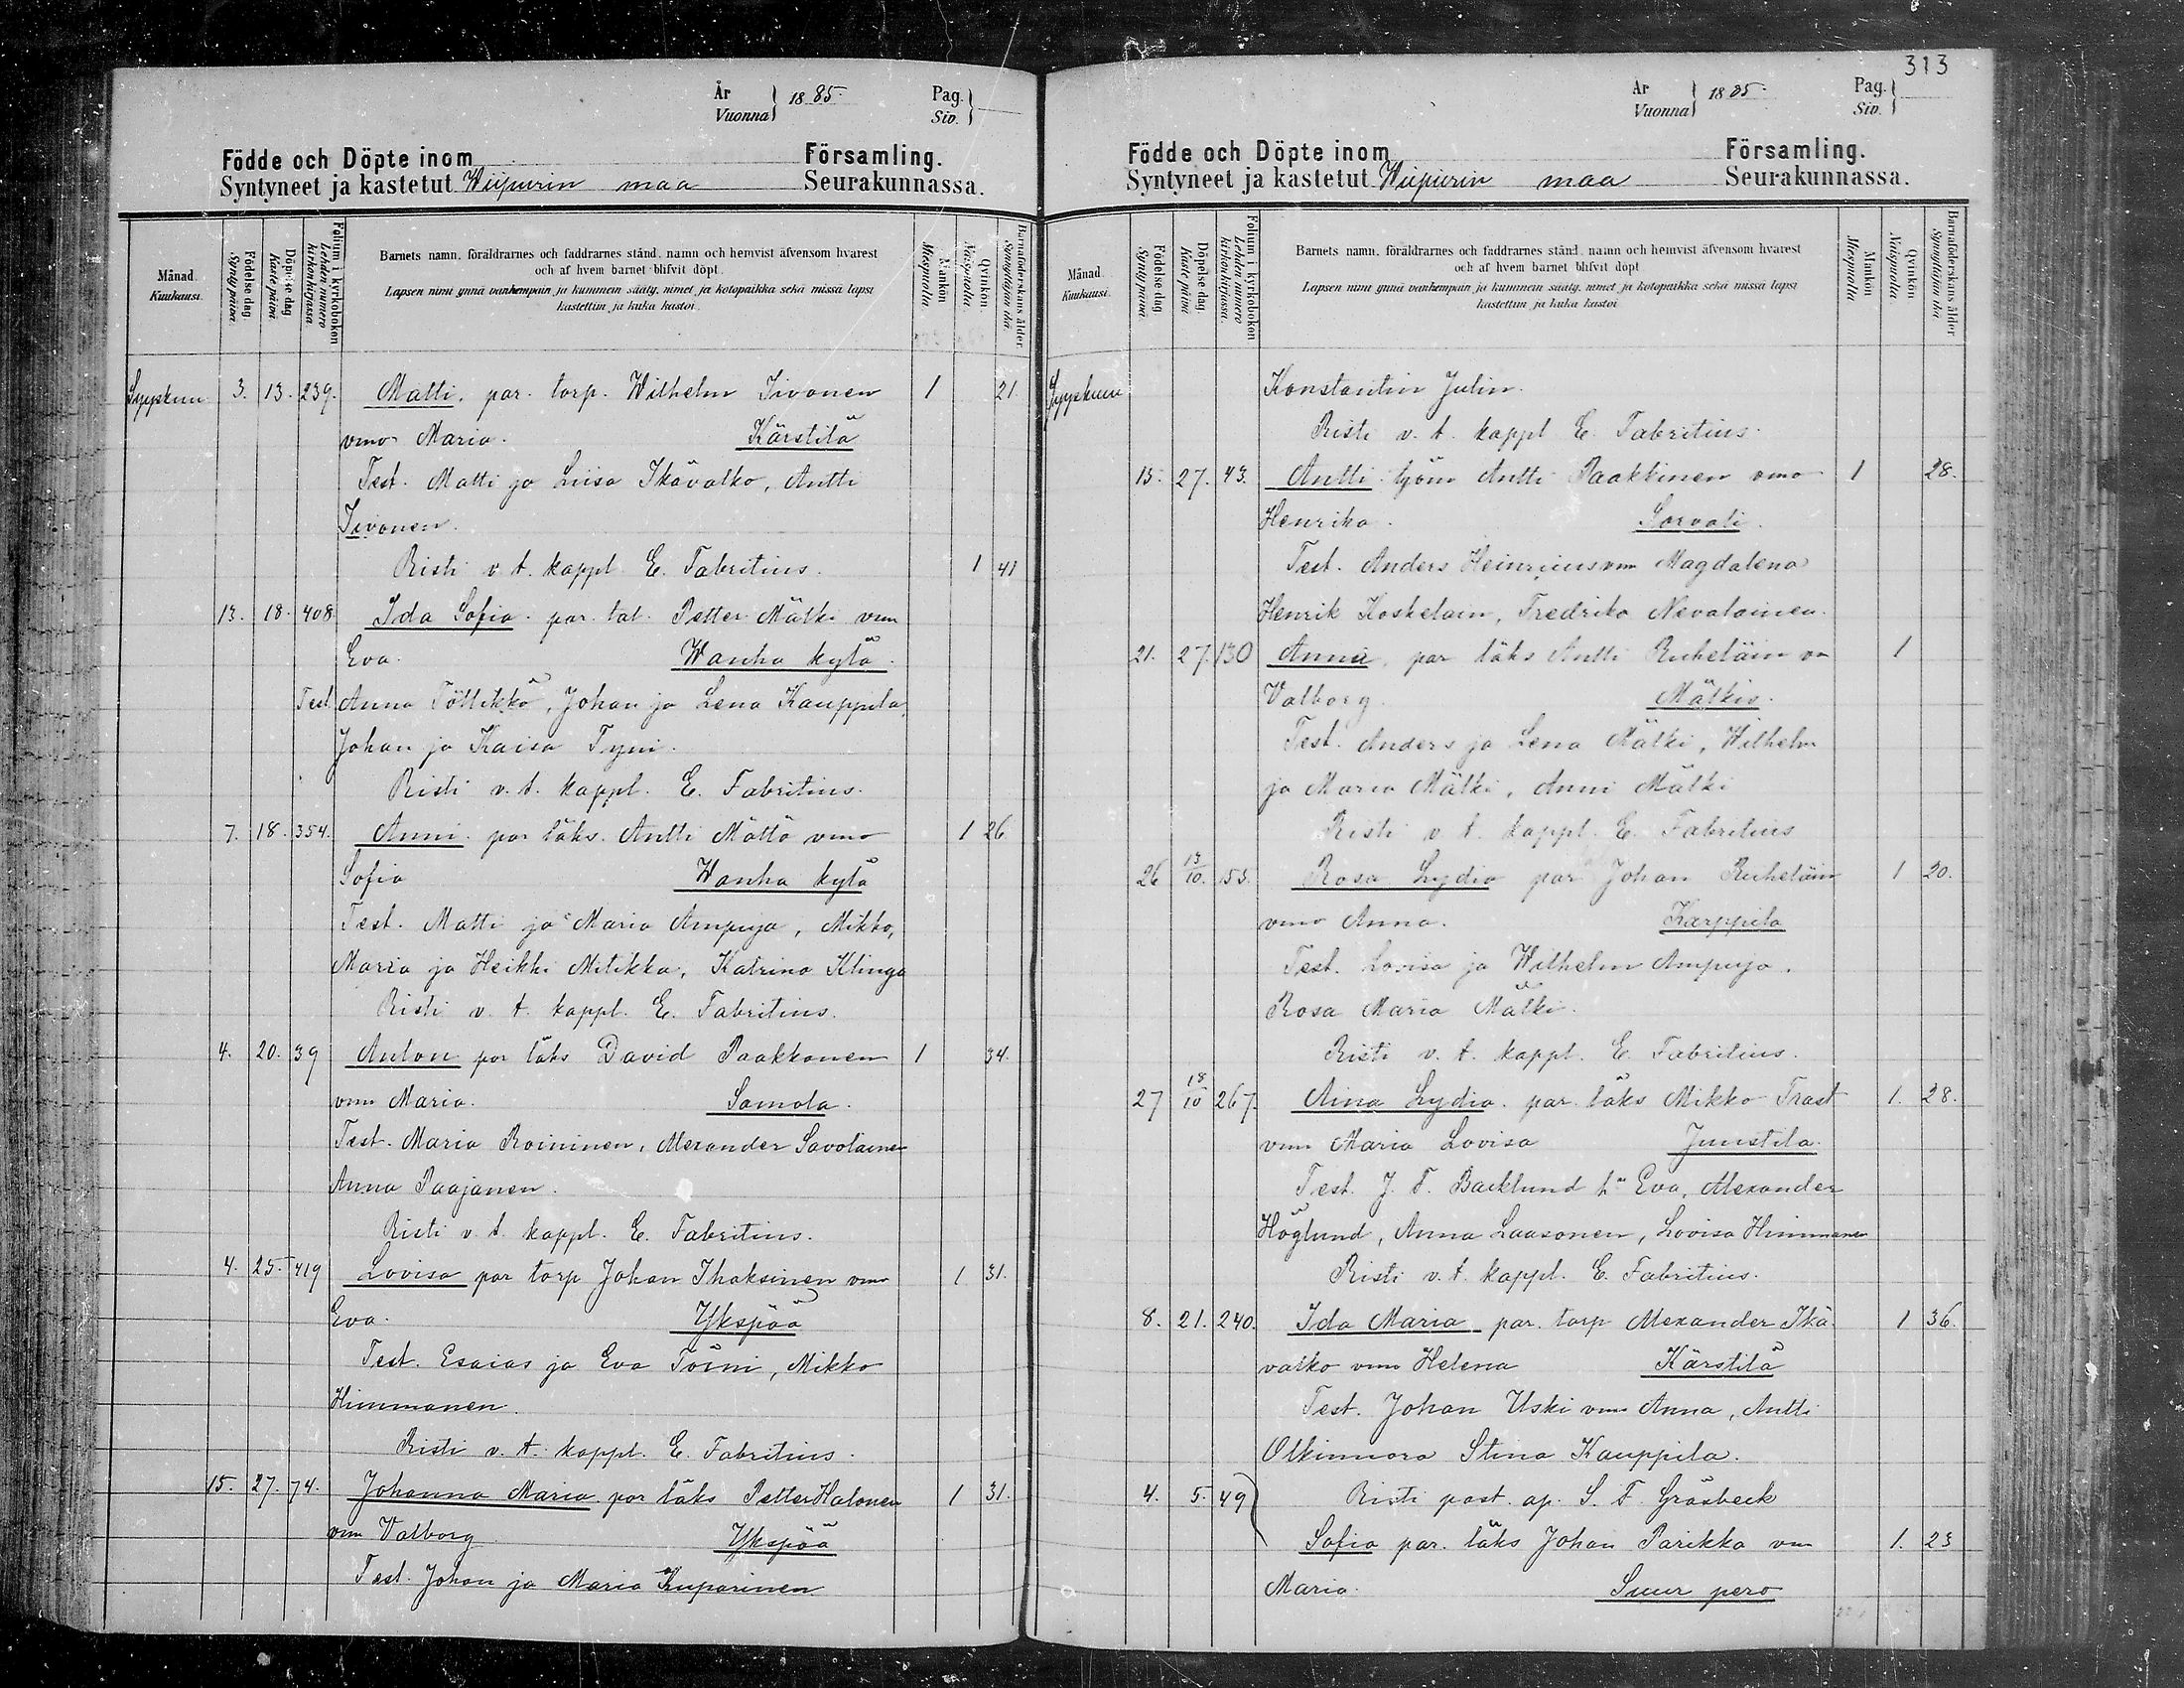 År
Vuonna } 1885.
Pag.
Siv. }
Födde och Döpte inom Församling.
Syntyneet ja kastetut Wiipurin maa Seurakunnassa.
Månad.
Kuukausi.
Födelse dag.
Synty päivä.
Döpelse dag.
Kaste päivä
Folium i kyrkoboken
Lehden numero kirkonkirjassa.
Barnets namn, föräldrarnes och faddrarnes stånd, namn och hemvist äfvensom hvarest
och af hvem barnet blifvit döpt.
Lapsen nimi ynnä vanhempain ja kummein sääty, nimet ja kotopaikka sekä missä lapsi
kastettiin ja kuka kastoi.
Mankön
Miespuolta
Qvinkön
Naispuolta.
Barnaföderskans ålder.
Synnyttäjän ikä.
Syyskuu 3. 13. 239. Matti, par. torp. Wilhelm Iivonen 1 21
vmo Maria. Kärstilä
Test. Matti ja Liisa Ikävalko, Antti
Iivonen.
Risti v. t. kappl E. Fabritius. 1 41
13. 18. 408 Ida Sofia. par. tal. Petter Mälki vmo
Eva. Wanha kylä.
Test. Anna Töttikkö, Johan ja Lena Kauppila,
Johan ja Kaisa Tyni.
Risti v. t. kappl. E. Fabritius.
7. 18. 354. Anni. par läks. Antti Mättö vmo 1 26
Sofia Wanha kylä
Test. Matti ja Maria Ampuja, Mikko,
Maria ja Heikki Mitikka, Katrina Klinga
Risti v. t. kappl. E. Fabritius.
4. 20. 39 Anton par läks David Paakkonen 1 34.
vmo Maria. Samola.
Test. Maria Roininen, Alexander Savolainen
Anna Paajanen.
Risti v. t. kappl. E. Fabritius.
4. 25. 419 Lovisa par torp Johan Ihaksinen vmo 1 31.
Eva. Ykspää
Test. Esaias ja Eva Töini, Mikko
Himmanen.
Risti v. t. kappl. E. Fabritius.
15. 27. 74. Johanna Maria par läks Petter Halonen 1 31.
vmo Valborg Ykspää
Test. Johan ja Maria Kuparinen.
313
År
Vuonna } 1885.
Pag.
Siv. }
Födde och Döpte inom Församling.
Syntyneet ja kastetut Wiipurin maa Seurakunnassa.
Månad.
Kuukausi.
Födelse dag
Synty päivä.
Döpelse dag.
Kaste päivä
Folium i kyrkoboken
Lehden numero kirkonkirjassa.
Barnets namn, föräldrarnes och faddrarnes stånd, namn och hemvist äfvensom hvarest
och af hvem barnet blifvit döpt
Lapsen nimi ynnä vanhempain ja kummein sääty, nimet ja kotopaikka sekä missä lapsi
kastettiin ja kuka kastoi
Mankön
Miespuolta
Qvinkön
Naispuolta.
Barnaföderskans ålder.
Synnyttäjän ikä
Syyskuu Konstantin Julin.
Risti v. t. kappl E. Fabritius.
15. 27. 43. Antti. työm Antti Paakkinen vmo 1 28.
Henrika. Sorvali.
Test. Anders Heinricius vmo Magdalena
Henrik Koskelain, Fredrika Nevalainen.
21. 27. 130 Anna, par läks Antti Ruheläin vo 1
Valborg. Mälkis.
Test. Anders ja Lena Mälki, Wilhelm
ja Maria Mälki, Anni Mälki
Risti v. t. kappl. E. Fabritius
26 13/10. 155. Rosa Lydia par Johan Ruheläin 1 20.
vmo Anna. Karppila
Test. Lovisa ja Wilhelm Ampuja.
Rosa Maria Mälki.
Risti v. t. kappl. E. Fabritius.
27 18/10 267. Aina Lydia. par. läks Mikko Trast 1. 28.
vmo Maria Lovisa Juustila.
Test. J. F. Backlund h:u Eva, Alexander
Höglund, Anna Laasonen, Lovisa Himmanen
Risti v. t. kappl. E. Fabritius.
8. 21. 240. Ida Maria par. torp Alexander Ikä- 1 36.
valko vmo Helena Kärstilä
Test. Johan Uski vmo Anna, Antti
Olkinuora Stina Kauppila.
4. 5. 49 Risti past. ap. S. F. Gräsbeck
Sofia par. läks Johan Parikka vmo 1. 23
Maria. Suur pero